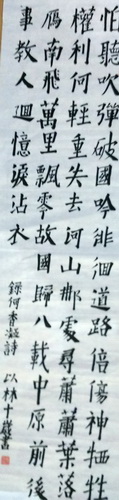 怕聽吹彈破國吟徘徊道路倍傷神牺牲
權利何輕重失去河山那處尋蕭蕭葉落
雁南飛萬里飄零故國歸八載中原前後
事教人迴憶淚沾衣
錄何香凝詩
以林十歲書